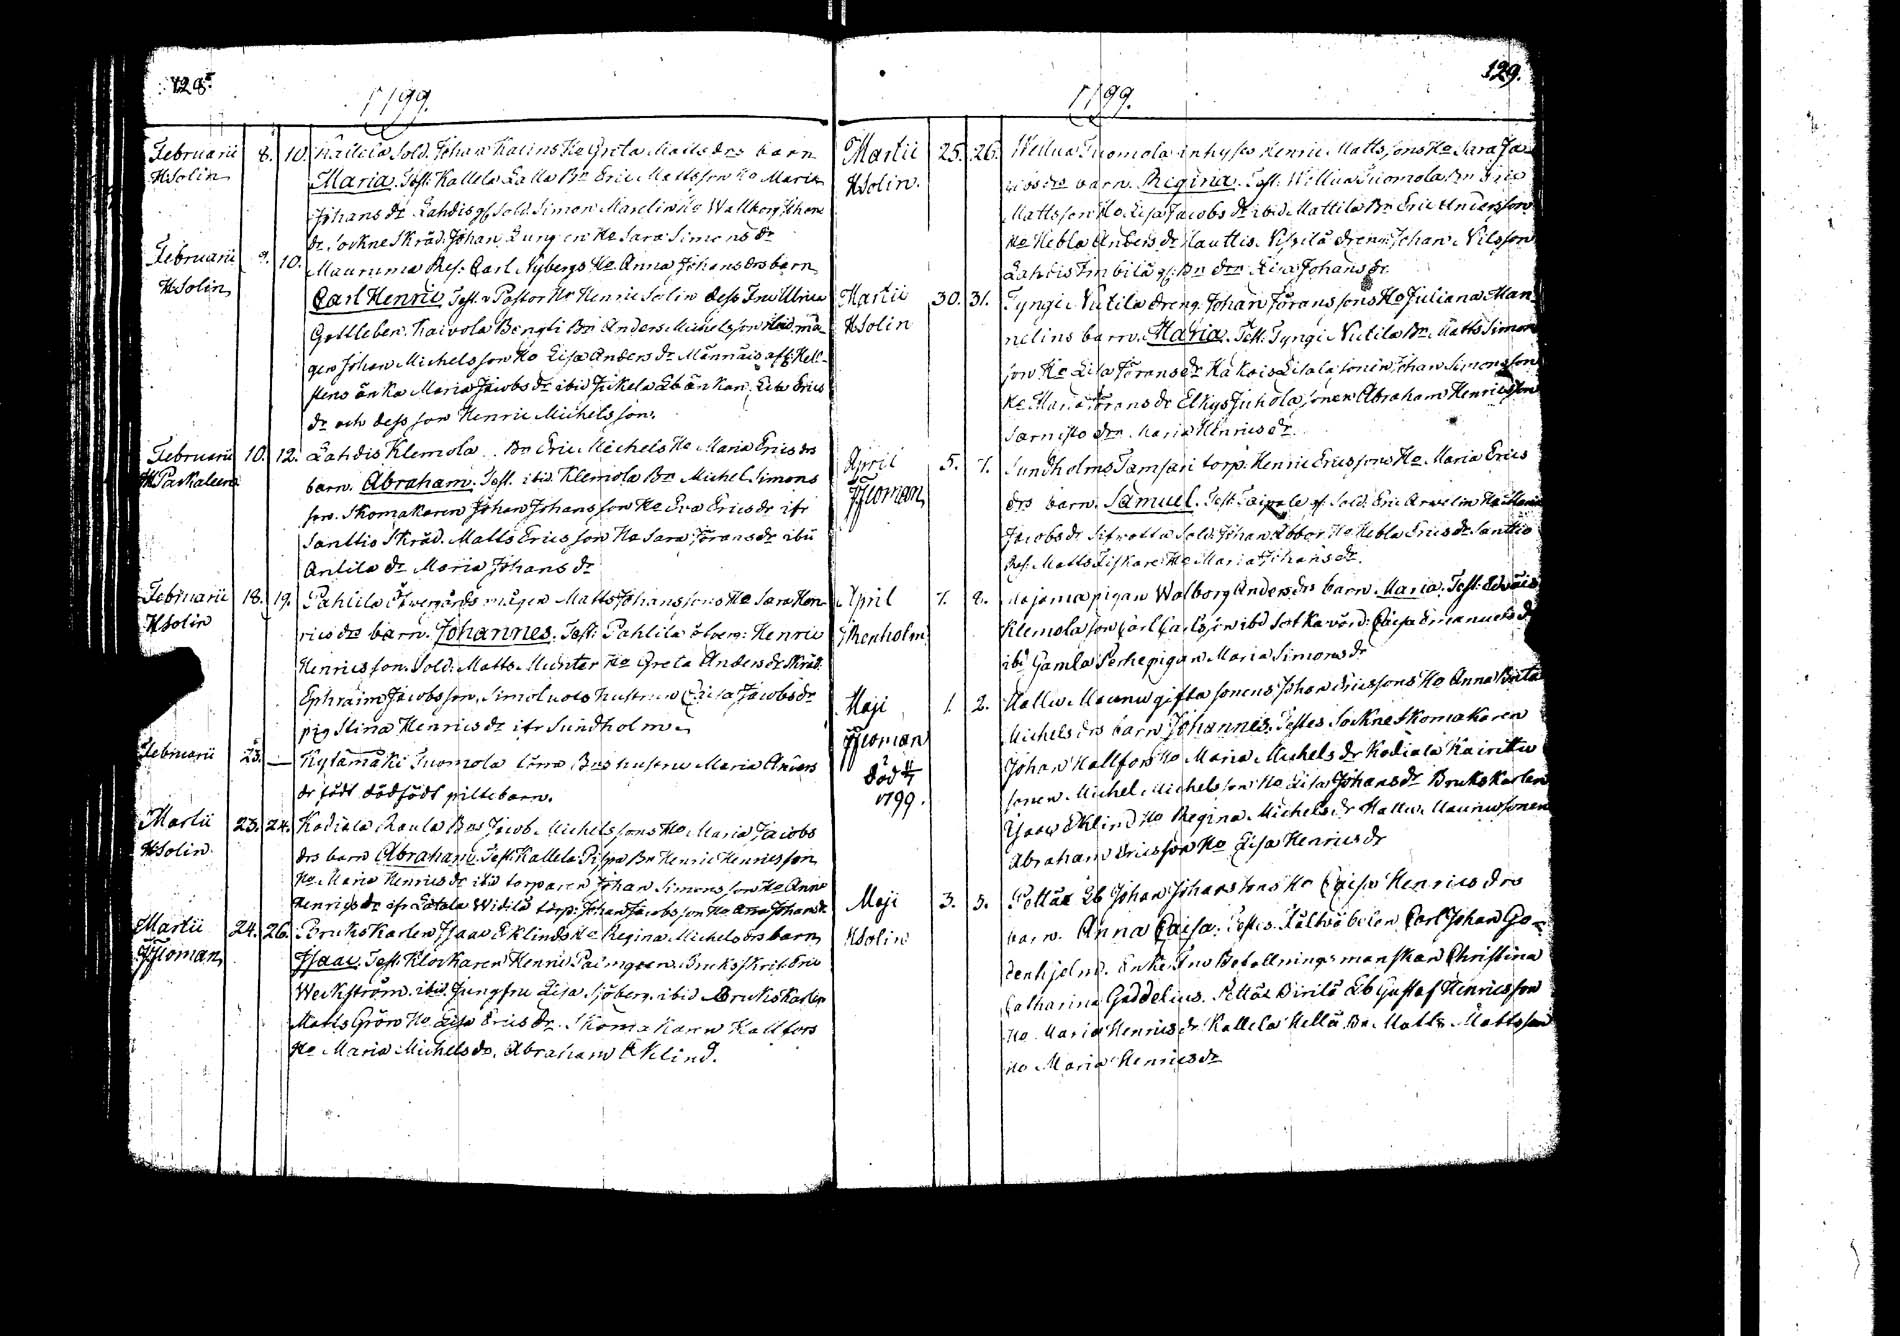 128.
1799.
Februarii 8. 10. Sold. Johan Kalins Ho Greta Matts drs barn
HSolin Maria. Test: Kallela Lalla Bn Eric Mattsson Ho Maria
Johans dr Lahdis gf Sold. Simon Marelin Ho Wallborg Johans
dr Sockne Skräd. Johan Ljungren Ho Sara Simons dr
Februarii 9. 10. Mauruma Res: Carl Nybergs Ho Anna Johans drs barn
HSolin Carl Henric Test. v Pastor Hr Henric Solin dess Fru Ulrica
Gottleben. Kaivola Bengti Bn Anders Michelsson ibid må-
gen Johan Michelsson Ho Lisa Anders dr Männäis afsk: Hell-
stens änka Maria Jacobs dr ibid Jukela Lb änkan Lisa Erics
dr och dess son Henric Michelsson.
Februarii 10. 12. Lahdis Klemola Bn Eric Michels Ho Maria Erics drs
H Paskaleen barn. Abraham. Test. ibid Klemola Bn Michel Simons
son. Skomakaren Johan Johansson Ho Eva Erics dr ifr
Santtio Skräd. Matts Ericsson Ho Sara Görans dr ibid
Antila dr Maria Johans dr
Februarii 18. 19. Pahlila Öfvergårds mågen Matts Johanssons Ho Sara Hen-
HSolin rics drs barn. Johannes. Test: Pahlila öfverg: Henric
Henricsson. Sold. Matts Munter Ho Greta Anders dr Skräd.
Ephraim Jacobsson. hustrun Caisa Jacobs dr
pig Stina Henrics dr ifr Sundholm.
Februarii 23. — Kylämäki Tuomola Bns hustru Maria Anders
dr födt dödfödt piltebarn.
Martii 23. 24. Kodiala Raula Bns Jacob Michelssons Ho Maria Jacobs
HSolin drs barn Abraham. Test: Kallela Pispa Bn Henric Henricsson
Ho Maria Henrics dr ibid torparen Johan Simonsson Ho Anna
Henrics dr ifr Latala Widilä torp: Johan Jacobsson Ho Anna Johans dr
Martii 24. 26. Brukskarlen Isaac Eklinds Ho Regina Michels drs barn
JFloman Isaac. Test: Klockaren Henric Palmgren. Bruksskrifv. Eric
Weckström. ibid. Jungfru Lisa Sjöberg. ibid Brukskarlen
Matts Grön Ho Lisa Erics dr. Skomakaren Hallfors
Ho Maria Michels dr. Abraham Eklind.
129.
1799.
Martii 25. 26. Wellua Tuomola inhyses Henric Mattssons Ho Sara Ja-
HSolin. cobs drs barn. Regina. Test: Wellua Tuomola Bn Eric
Mattsson Ho Lisa Jacobs dr ibid Mattila Bn Eric Andersson
Ho Hebla Anders dr Nauttis Nissilä dreng: Johan Nilsson
Lahdis Imbilä gf: Bn drn Lisa Johans dr
Martii 30. 31. Tyngi Nutila dreng Johan Göranssons Ho Juliana Man-
HSolin nelins barn. Maria. Test: Tyngi Nutila Bn Matts Simon
son Ho Lisa Görans dr Kakois Eisala sonen Johan Simonsson
Ho Maria Görans dr Elkys Juhola sonen Abraham Henricsson
Sarnisto drn Maria Henrics dr.
April 5. 7. Sundholms Tamsari torp: Henric Ericssons Ho Maria Erics
JFloman drs barn. Samuel. Test: Taipale gf Sold. Eric Arvelin Ho Maria
Jacobs dr Sold. Johan Abbor Ho Hebla Erics dr Santtio
Res. Matts Fiskare Ho Maria Johans dr.
April 7. 8. pigan Walborg Anders drs barn Maria. Test:
JRenholm Klemola son Carl Carlsson ibid Caisa Emanuels dr
ibd Gamla Perhe pigan Maria Simons dr
Maji 1. 2. Hallu Maunu gifta sonens Johan Ericssons Ho Anna Brita
JFloman Michels drs barn Johannes. Testes Sockne Skomakaren
död 11/7 1799. Johan Hallfors Ho Maria Michels dr Kodiala Kairitu
sonen Michel Michelsson Ho Lisa Johans dr Brukskarlen
Isaac Eklind Ho Regina Michels dr Hallu Maunu sonen
Abraham Ericsson Ho Lisa Henrics dr
Maji 3. 5. Pettäe Lb Johan Johanssons Ho Caisa Henrics drs
HSolin barn. Anna Caisa. Testes. Carl Johan Go-
denhjelm. Enke Fru Befallningsmanskan Christina
Catharina Gaddelius. Pettäe Birilä Lb Gustaf Henricsson
Ho Maria Henrics dr Kallela Hellä Bn Matts Mattsson
Ho Maria Henrics dr